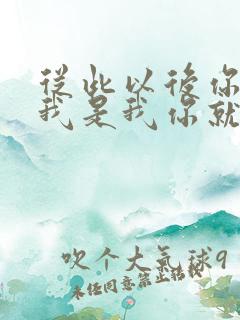 從此以後你
我是我你就
吹个大氣球9
未经同意禁止转载